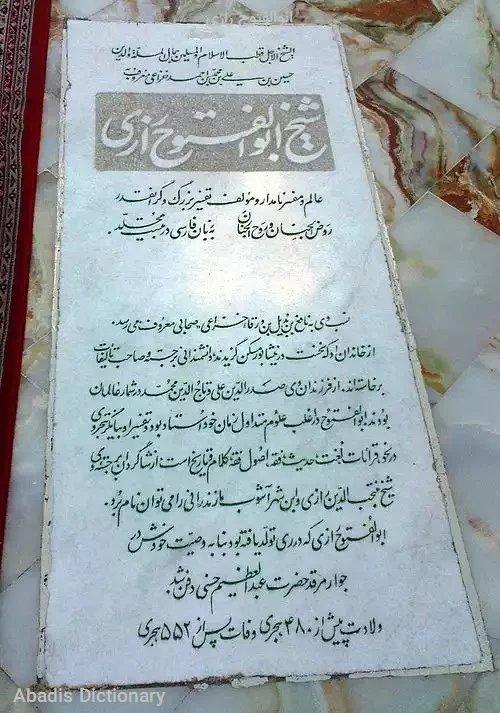 ابوالفتوح رازی
الشیخ الاجل قطب الاسلام و المسلمین جمال الملة والدین
حسین بن علی بن محمد بن احمد خزاعی معروف به
شیخ ابوالفتوح رازی
عالم و مفسر نامدار و مؤلف تفسیر بزرگ و گرانقدر
روض الجنان و روح الجنان به زبان فارسی در بیست مجلد.
نسب وی به نافع بن بدیل بن ورقاء خزاعی، صحابی معروف می رسد.
از خاندان او که نخست در نیشابور سکن گزیدند دانشمندانی برجسته و صاحب تالیفات
برخاسته اند. از فرزندان وی صدرالدین علی و تاج الدین محمد در شمار عالمان
بودند ابوالفتوح در اغلب علوم متداول زمان خود استاد بود و تفسیر او بیانگر تبحر وی
در نحو قرائات لغت حدیث فقه اصول فقه کلام و تاریخ است از شاگردان برجسته وی
شیخ منتجب الدین رازی و ابن شهر آشوب مازندرانی را می توان نام برد.
ابوالفتوح رازی که در ری تولد یافته بود بنا به وصیت خودش در
جوار مرقد حضرت عبدالعظیم حسنی دفن شد
ولادت پیش از ۴۸۰ هجری وفات پس از ۵۵۲ هجری
Abadis Dictionary